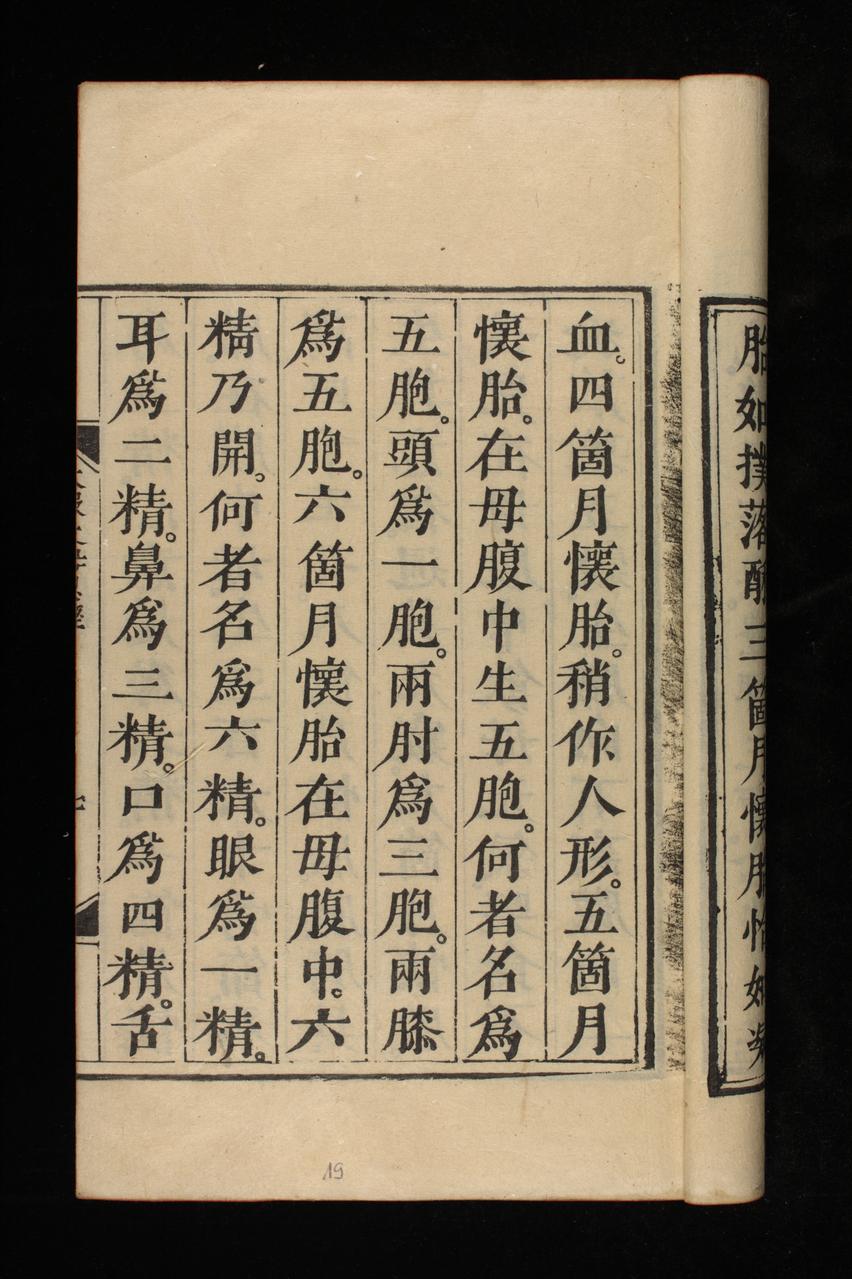 胎如撲落酥三箇月懷胎恰如凝
血。四箇月懷胎。稍作人形。五箇月
懷胎。在母腹中生五胞。何者名爲
五胞。頭爲一胞。兩肘爲三胞。兩膝
爲五胞。六箇月懷胎在母腹中。六
精乃開。何者名爲六精。眼爲一精。
耳爲二精。鼻爲三精。口爲四精。舌
19